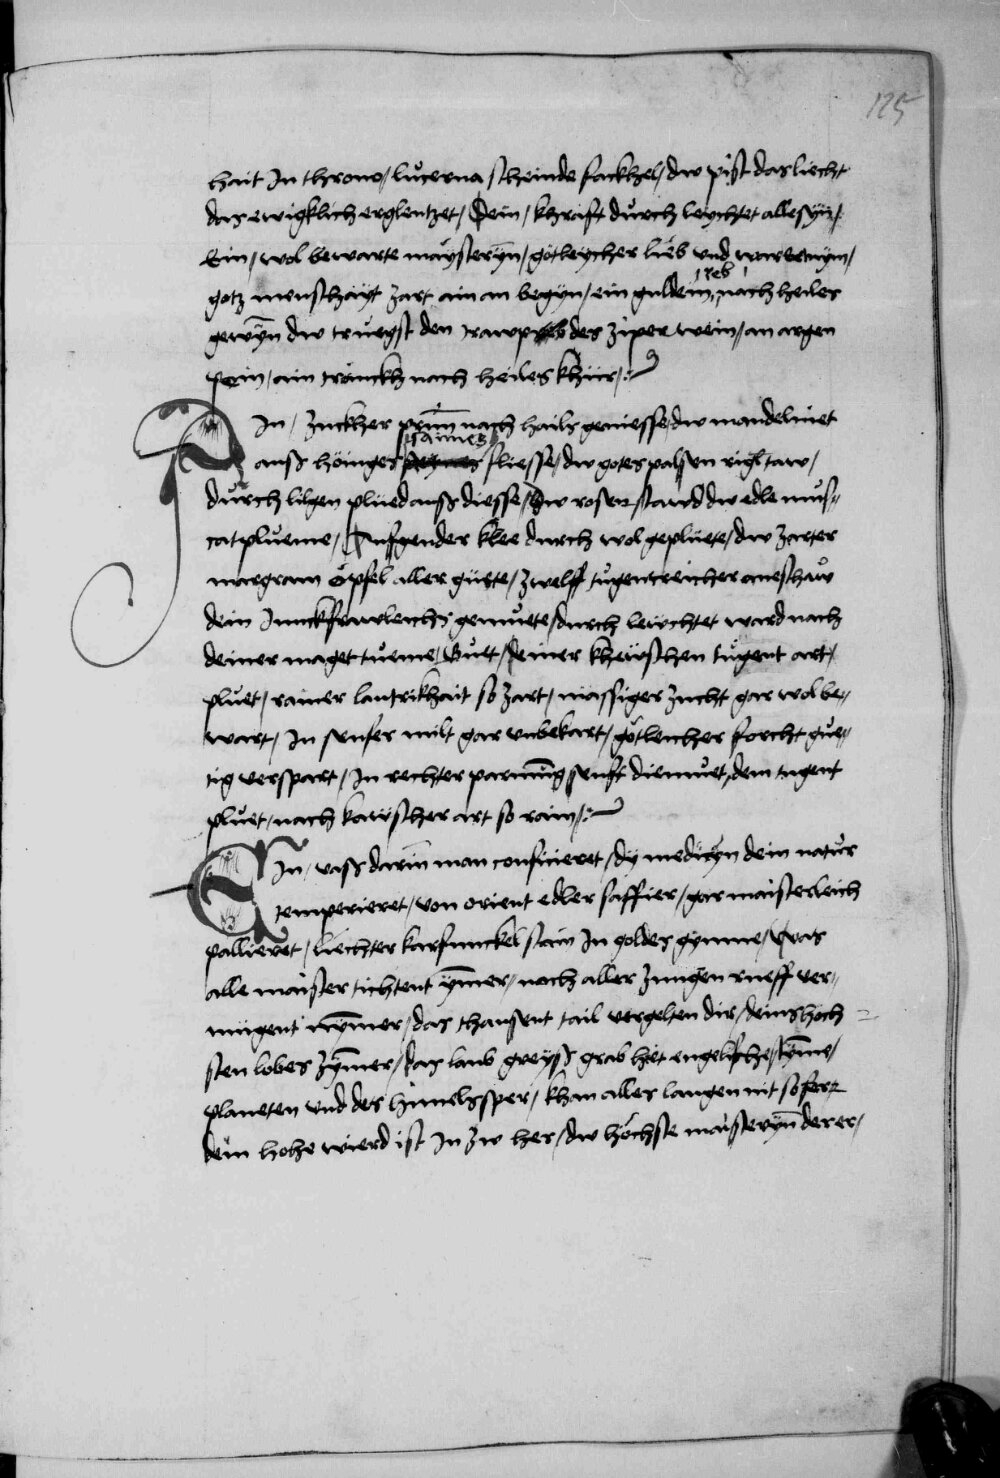 125
hait In throno / lucerna scheinde fackhel / dw pist das liecht
das ewigklich erglentzet / Dein / khraft dürch leüchtet alle syn /
Ein / wol bewarte maysterÿn / götleycher lieb vnd
gotz menschait zart ain an begÿn / ein guldein reb nach heiles
gewÿn dw truegst den des ziper wein / an argen
pein / ain tranckh nach heiles khür /
In / Zuckher prunn nach hails geniesse / dw mandelniet
auss hönigs saimes fliesse / dw gotes palsen rigl taw /
dürch lilgen plüed auss diesse / dw rosen stawd dw edle mus-
catplueme / Aufgender klee durch wol geplüete / dw zarter
margram öpfel aller güete / zwelff tugentreicher aneschaw
dein Junckfrawleichs gemüete / durch lewchtet ward nach
deiner maget tueme / Guet / deiner khewschen tugent art /
pluet / rainer lautrikhait so zart / mässiger zücht gar wol be-
wart / In senfer milt gar vnbekart / götleicher forcht güe-
tig verspart / In rechter parmung senft diemuet / dem tugent
pluet / nach kawscher art so rain /
In / vass darin man conficieret / dy medicÿn dein natur
temperieret / von orient edler saffier / gar maisterleich
pallieret / liechter karfunckel stain In goldes gÿmme / Was
alle maister tichtent ÿmmer / nach aller zungen rueff ver-
mügent nÿmmer / das thausent tail vergelten dir / deins höch
sten lobes zÿmmer / das laub greyss grab het engelische stÿme /
planeten vnd des himels sper / khan alles langen nit so ferr
dein hohe wierd ist In zw her / dw höchste maisterÿn der er /